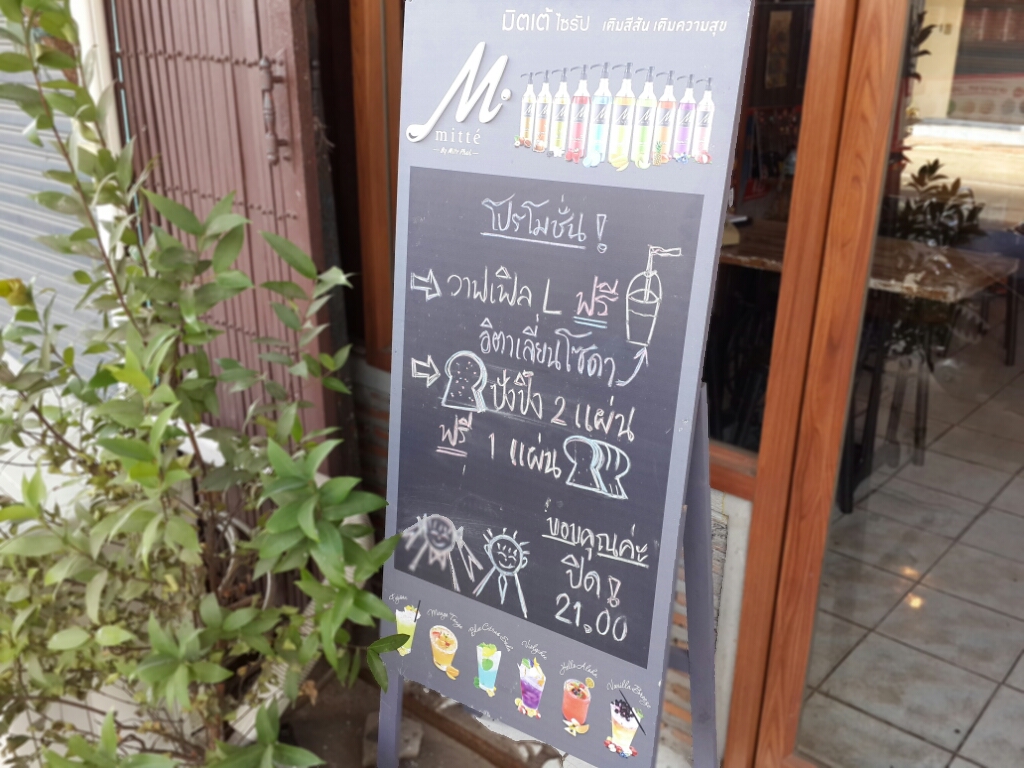 มิตเต้ ไซรัป เติมสีสัน เติมความสุข
M
mitté
โปรโมชั่น!
วาฟเฟิล L ฟรี
อิตาเลี่ยนโซดา
ปังปิ้ง 2 แผ่น
ฟรี 1 แผ่น
ขอบคุณค่ะ
ปิด!
21.00